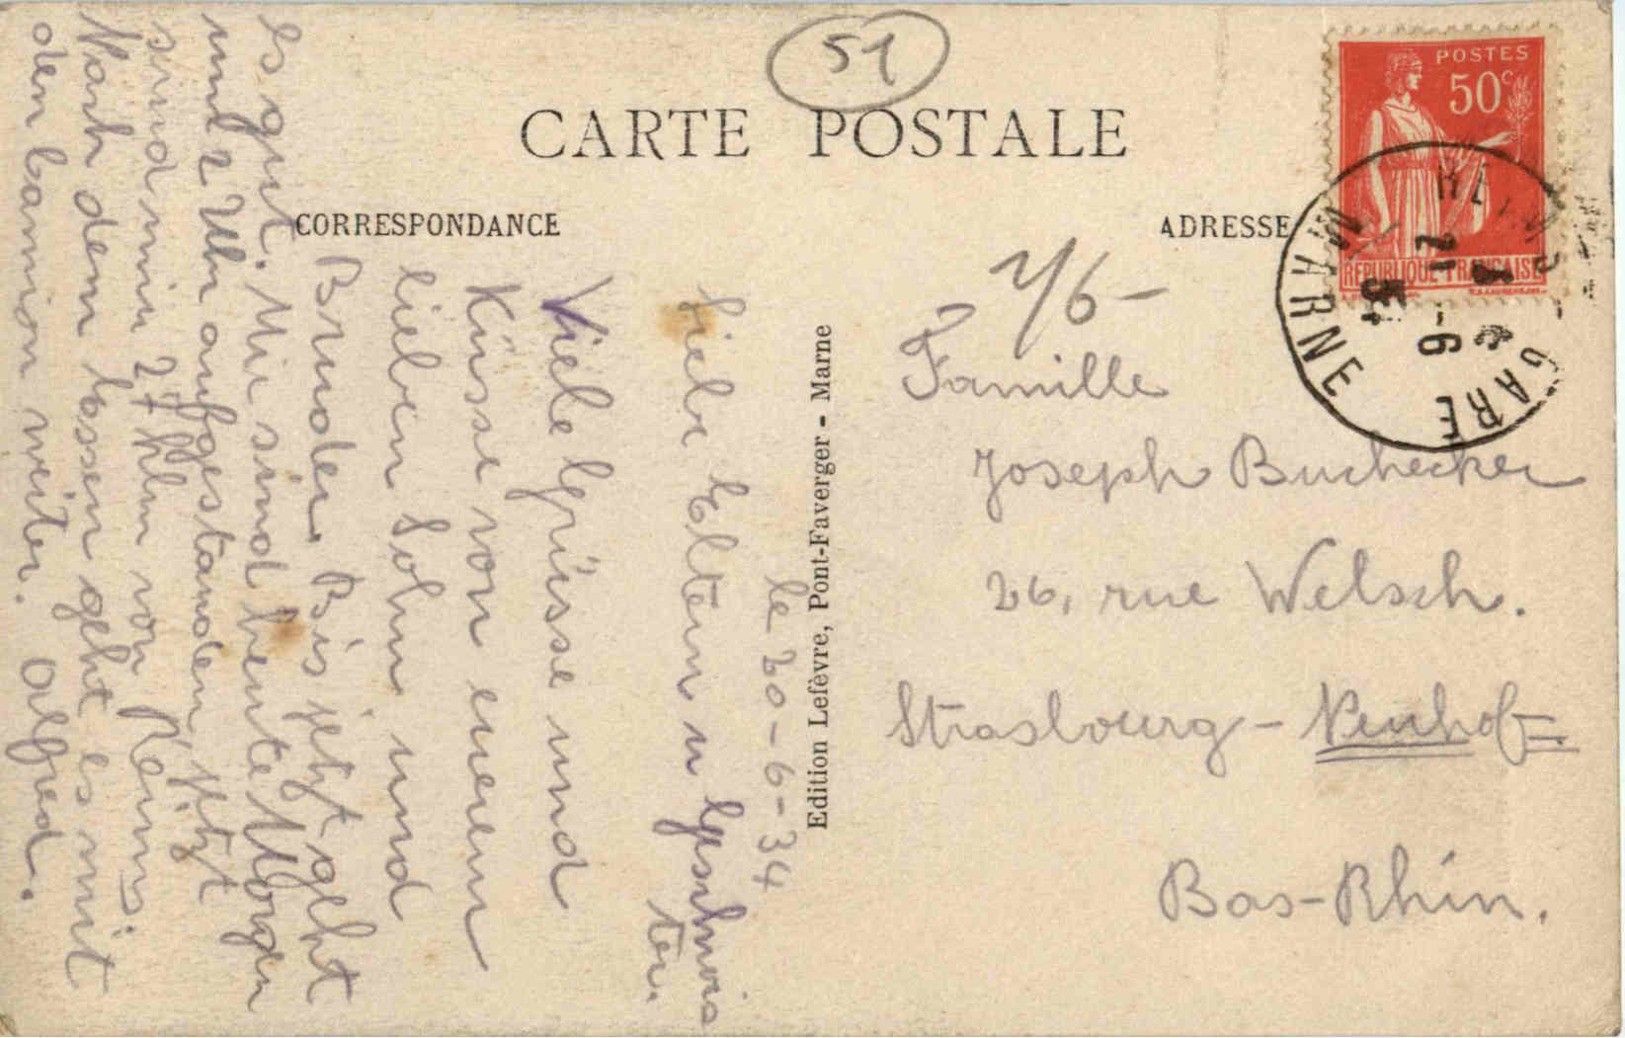 51
CARTE POSTALE
CORRESPONDANCE
ADRESSE
POSTES
50c
REPUBLIQUE FRANÇAISE
GARE
MARNE
21 -6
Edition Lefèvre, Pont-Faverger - Marne
le 20-6-34
Liebe Eltern u Geschwis
ter.
Viele Grüsse und
Küsse von eurem
lieben Sohn und
Bruder. Bis jetzt geht
es gut. Mir sind heute Morgen
um 2 Uhr aufgestanden, jetzt
sind mir 27 Klm von Reims.
Nach dem Essen geht es mit
den Camion weiter. Alfred.
Famille
Joseph Buchecker
26, rue Welsch.
Strasbourg-Neuhof.
Bas-Rhin.